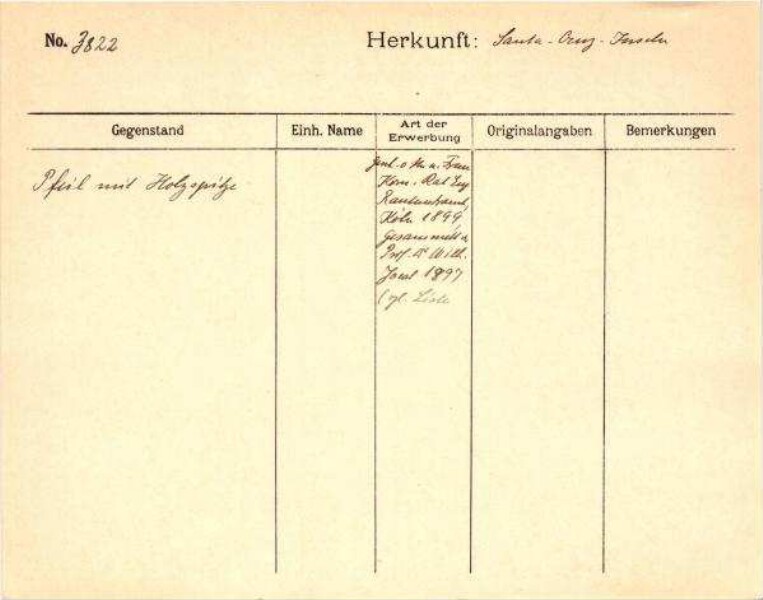 No. 3822
Herkunft: Santa-Cruz-Inseln
Gegenstand
Einh. Name
Art der
Erwerbung
Originalangaben
Bemerkungen
Pfeil mit Holzspitze
Frau
Kom. Rat Eug
Rautenstrauch,
Köln 1899
Gesammelt v.
Prof. Dr Wilh.
Joest 1897
(vgl. Liste